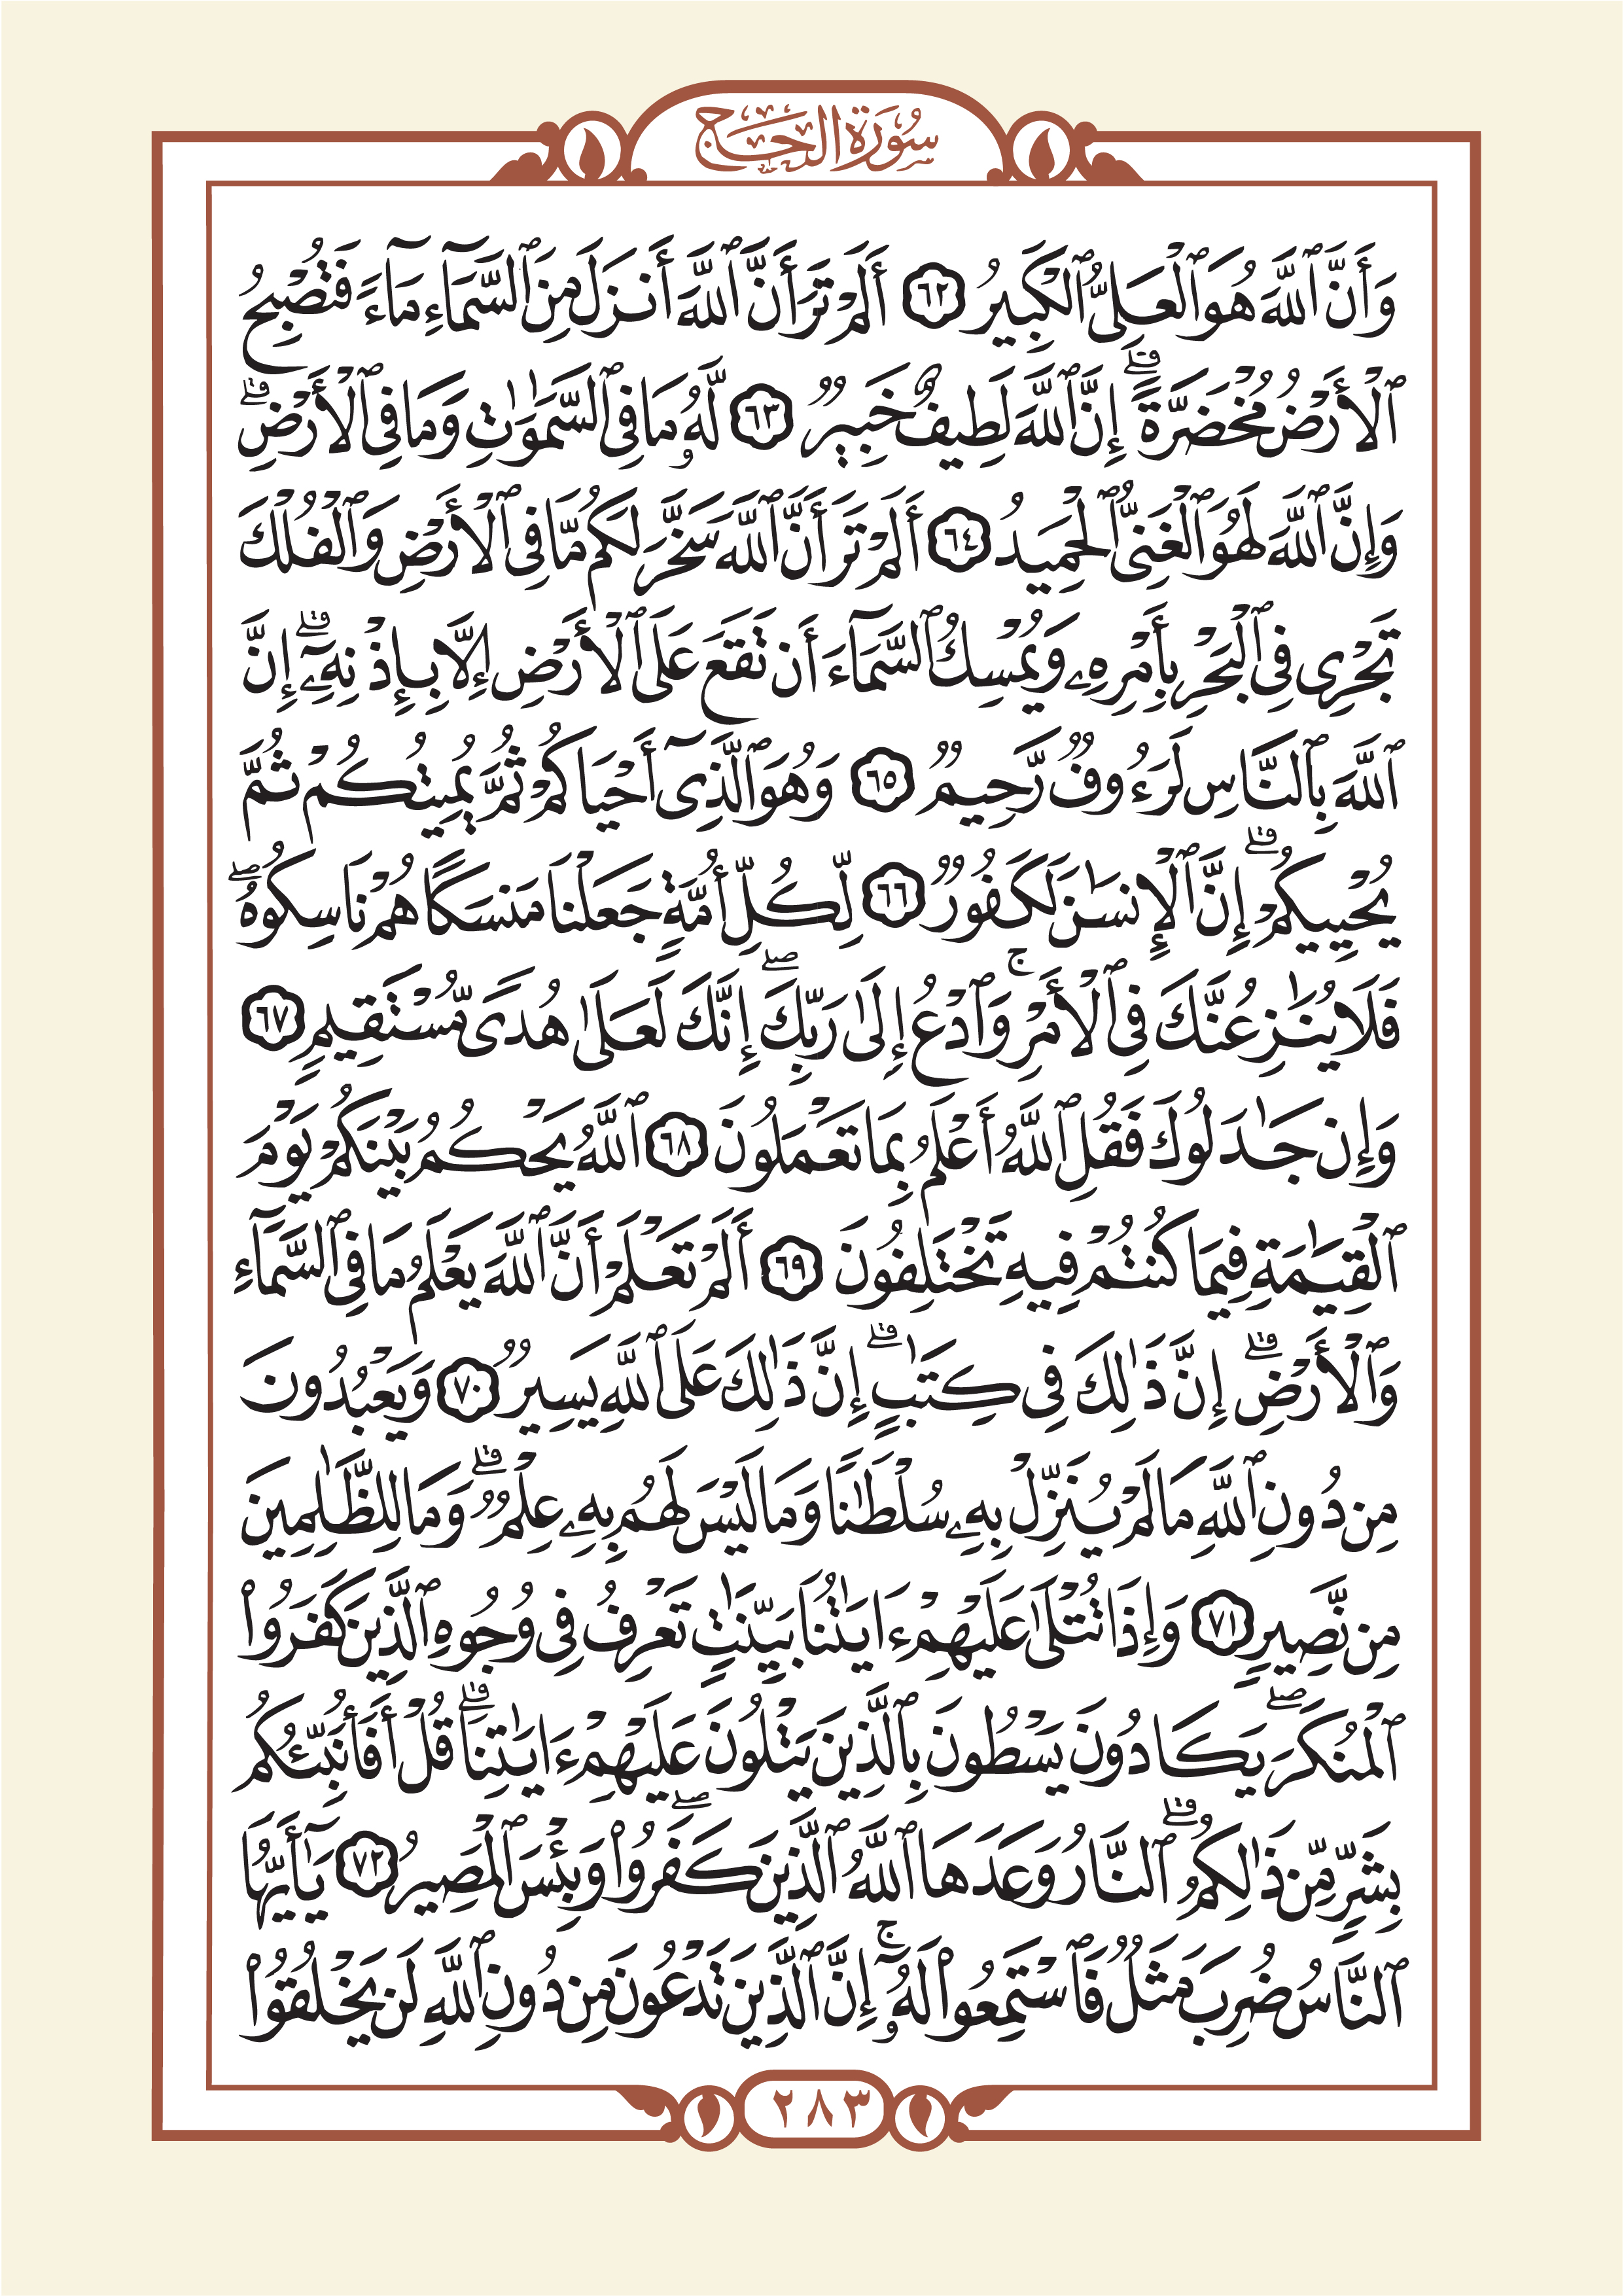 سُورَةُ الحَجّ
وَأَنَّ ٱللَّهَ هُوَ ٱلْعَلِىُّ ٱلْكَبِيرُ ٦٢ أَلَمْ تَرَ أَنَّ ٱللَّهَ أَنزَلَ مِنَ ٱلسَّمَآءِ مَآءً فَتُصْبِحُ
ٱلْأَرْضُ مُخْضَرَّةً ۗ إِنَّ ٱللَّهَ لَطِيفٌ خَبِيرٌ ٦٣ لَّهُۥ مَا فِى ٱلسَّمَٰوَٰتِ وَمَا فِى ٱلْأَرْضِ ۗ
وَإِنَّ ٱللَّهَ لَهُوَ ٱلْغَنِىُّ ٱلْحَمِيدُ ٦٤ أَلَمْ تَرَ أَنَّ ٱللَّهَ سَخَّرَ لَكُم مَّا فِى ٱلْأَرْضِ وَٱلْفُلْكَ
تَجْرِى فِى ٱلْبَحْرِ بِأَمْرِهِۦ وَيُمْسِكُ ٱلسَّمَآءَ أَن تَقَعَ عَلَى ٱلْأَرْضِ إِلَّا بِإِذْنِهِۦٓ ۗ إِنَّ
ٱللَّهَ بِٱلنَّاسِ لَرَءُوفٌ رَّحِيمٌ ٦٥ وَهُوَ ٱلَّذِىٓ أَحْيَاكُمْ ثُمَّ يُمِيتُكُمْ ثُمَّ
يُحْيِيكُمْ ۗ إِنَّ ٱلْإِنسَٰنَ لَكَفُورٌ ٦٦ لِّكُلِّ أُمَّةٍ جَعَلْنَا مَنسَكًا هُمْ نَاسِكُوهُ ۖ
فَلَا يُنَٰزِعُنَّكَ فِى ٱلْأَمْرِ ۚ وَٱدْعُ إِلَىٰ رَبِّكَ ۖ إِنَّكَ لَعَلَىٰ هُدًى مُّسْتَقِيمٍ ٦٧
وَإِن جَٰدَلُوكَ فَقُلِ ٱللَّهُ أَعْلَمُ بِمَا تَعْمَلُونَ ٦٨ ٱللَّهُ يَحْكُمُ بَيْنَكُمْ يَوْمَ
ٱلْقِيَٰمَةِ فِيمَا كُنتُمْ فِيهِ تَخْتَلِفُونَ ٦٩ أَلَمْ تَعْلَمْ أَنَّ ٱللَّهَ يَعْلَمُ مَا فِى ٱلسَّمَآءِ
وَٱلْأَرْضِ ۗ إِنَّ ذَٰلِكَ فِى كِتَٰبٍ ۗ إِنَّ ذَٰلِكَ عَلَى ٱللَّهِ يَسِيرٌ ٧٠ وَيَعْبُدُونَ
مِن دُونِ ٱللَّهِ مَا لَمْ يُنَزِّلْ بِهِۦ سُلْطَٰنًا وَمَا لَيْسَ لَهُم بِهِۦ عِلْمٌ ۗ وَمَا لِلظَّٰلِمِينَ
مِن نَّصِيرٍ ٧١ وَإِذَا تُتْلَىٰ عَلَيْهِمْ ءَايَٰتُنَا بَيِّنَٰتٍ تَعْرِفُ فِى وُجُوهِ ٱلَّذِينَ كَفَرُوا۟
ٱلْمُنكَرَ ۖ يَكَادُونَ يَسْطُونَ بِٱلَّذِينَ يَتْلُونَ عَلَيْهِمْ ءَايَٰتِنَا ۗ قُلْ أَفَأُنَبِّئُكُم
بِشَرٍّ مِّن ذَٰلِكُمُ ۗ ٱلنَّارُ وَعَدَهَا ٱللَّهُ ٱلَّذِينَ كَفَرُوا۟ ۖ وَبِئْسَ ٱلْمَصِيرُ ٧٢ يَٰٓأَيُّهَا
ٱلنَّاسُ ضُرِبَ مَثَلٌ فَٱسْتَمِعُوا۟ لَهُۥٓ ۚ إِنَّ ٱلَّذِينَ تَدْعُونَ مِن دُونِ ٱللَّهِ لَن يَخْلُقُوا۟
٢٨٣